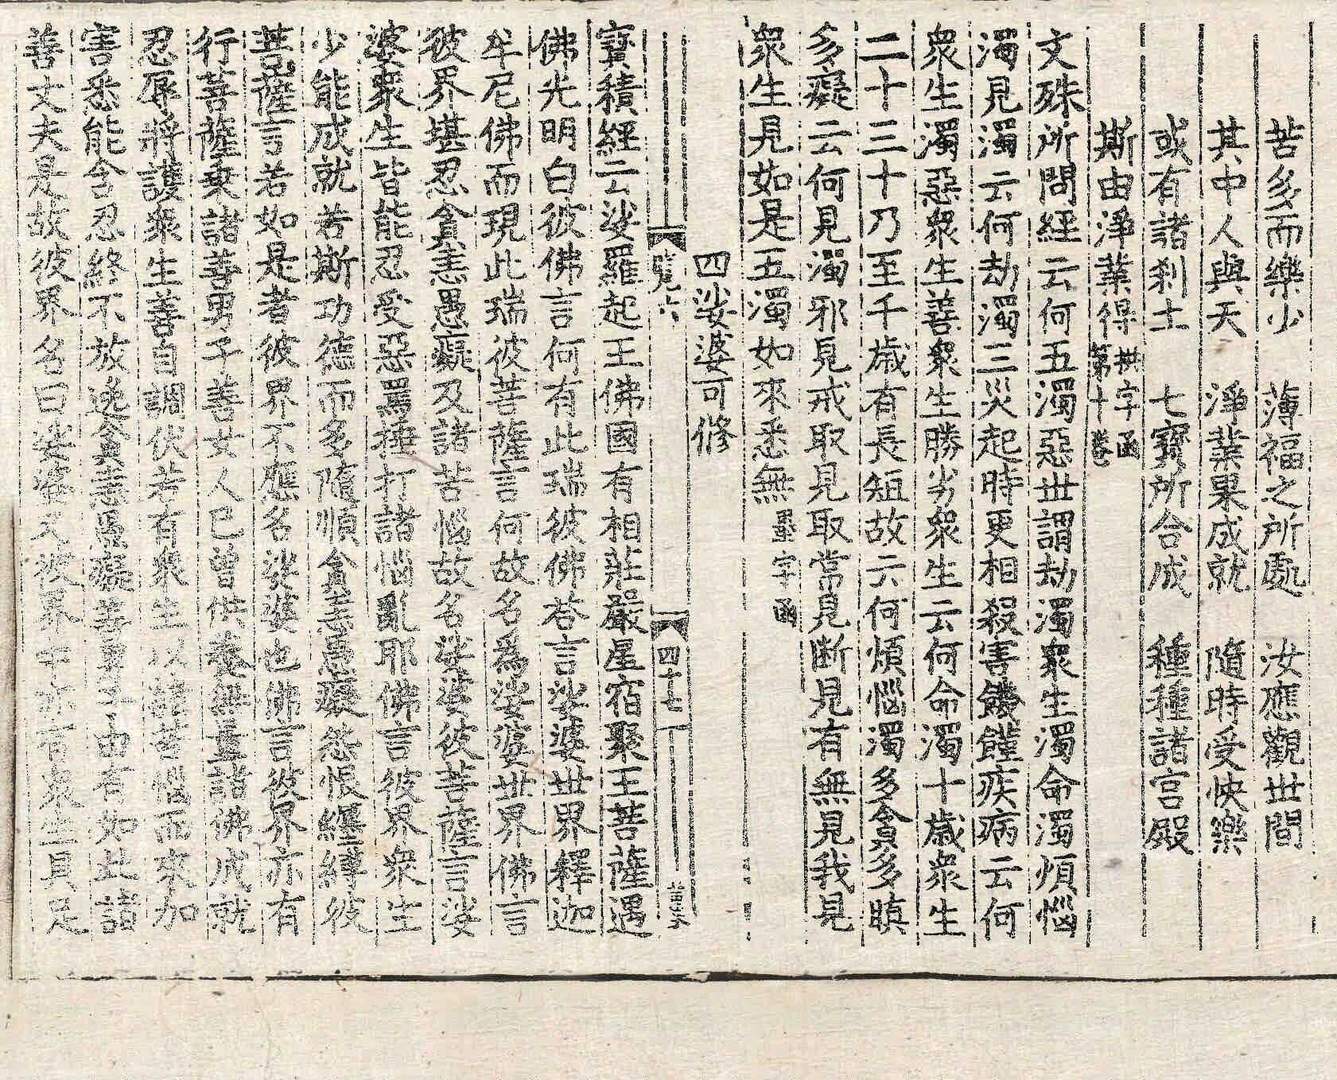 苦多而樂少　薄福之所處　汝應觀世間
其中人與天　淨業果成就　隨時受快樂
或有諸刹土　七寶所合成　種種諸宮殿
斯由淨業得拱字函第十卷
文殊所問經云何五濁惡世謂劫濁衆生濁命濁煩惱
濁見濁云何劫濁三災起時更相殺害饑饉疾病云何
衆生濁惡衆生善衆生勝劣衆生云何命濁十歲衆生
二十三十乃至千歲有長短故云何煩惱濁多貪多瞋
多癡云何見濁邪見戒取見取常見斷見有無見我見
衆生見如是五濁如來悉無墨字函
四娑婆可修
覺六　四十七
寶積經云娑羅起王佛國有相莊嚴星宿聚王菩薩遇
佛光明白彼佛言何有此瑞彼佛荅言娑婆世界釋迦
牟尼佛而現此瑞彼菩薩言何故名爲娑婆世界佛言
彼界堪忍貪恚愚癡及諸苦惱故名娑婆彼菩薩言娑
婆衆生皆能忍受惡罵捶打諸惱亂耶佛言彼界衆生
少能成就若斯功德而多隨順貪恚愚癡怨恨纏縛彼
菩薩言若如是者彼界不應名娑婆也佛言彼界亦有
行菩薩乗諸善男子善女人已曾供養無量諸佛成就
忍辱將護衆生善自調伏若有衆生以諸苦惱而來加
害悉能含忍終不放逸貪恚愚癡善男子由有如此諸
善丈夫是故彼界名曰娑婆又彼界中亦有衆生具足